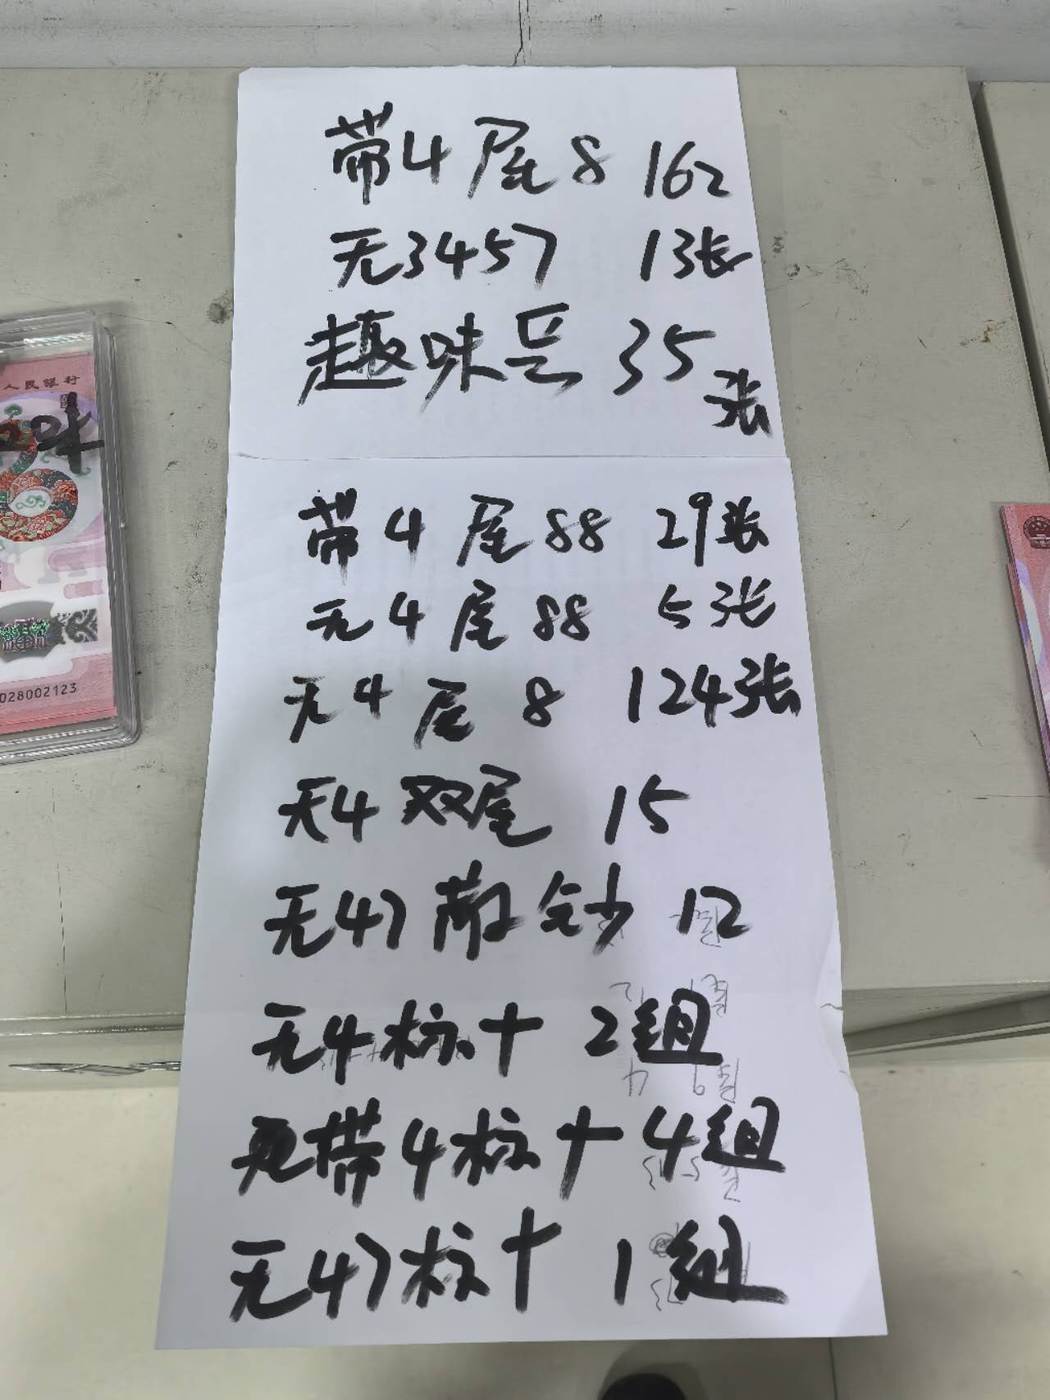 带4尾8 162
无3457 13张
趣味号 35
张
带4尾88 29张
无4尾88 5张
无4尾8 124张
无4双尾 15
无47散钞 12
无4标十 2组
带4标十 4组
无47标十 1组
人民银行
028002123